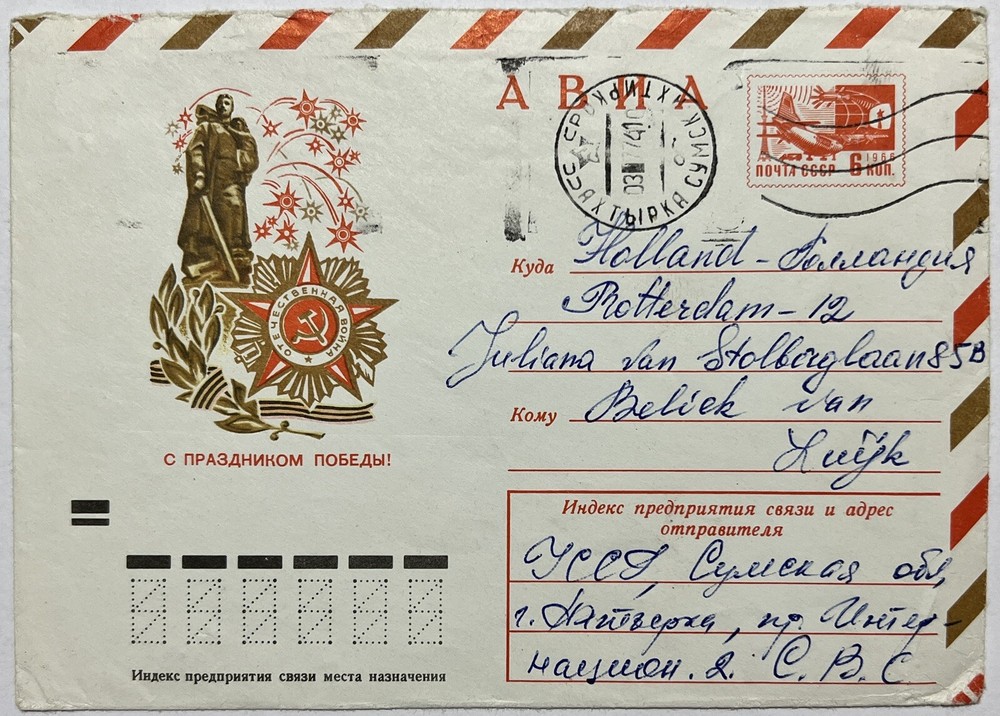 АВИА
АХТЫРКА СУМСК
ПОЧТА СССР 6 КОП.
1966
ОТЕЧЕСТВЕННАЯ ВОЙНА
С ПРАЗДНИКОМ ПОБЕДЫ!
Куда Holland - Голландия
Rotterdam - 12
Juliana van Stolberglaan 85B
Кому Beliek van
Luijk
Индекс предприятия связи и адрес
отправителя
УССР, Сумская обл,
г. Ахтырка, пр. Интер-
национ. 2. С. В. С.
Индекс предприятия связи места назначения